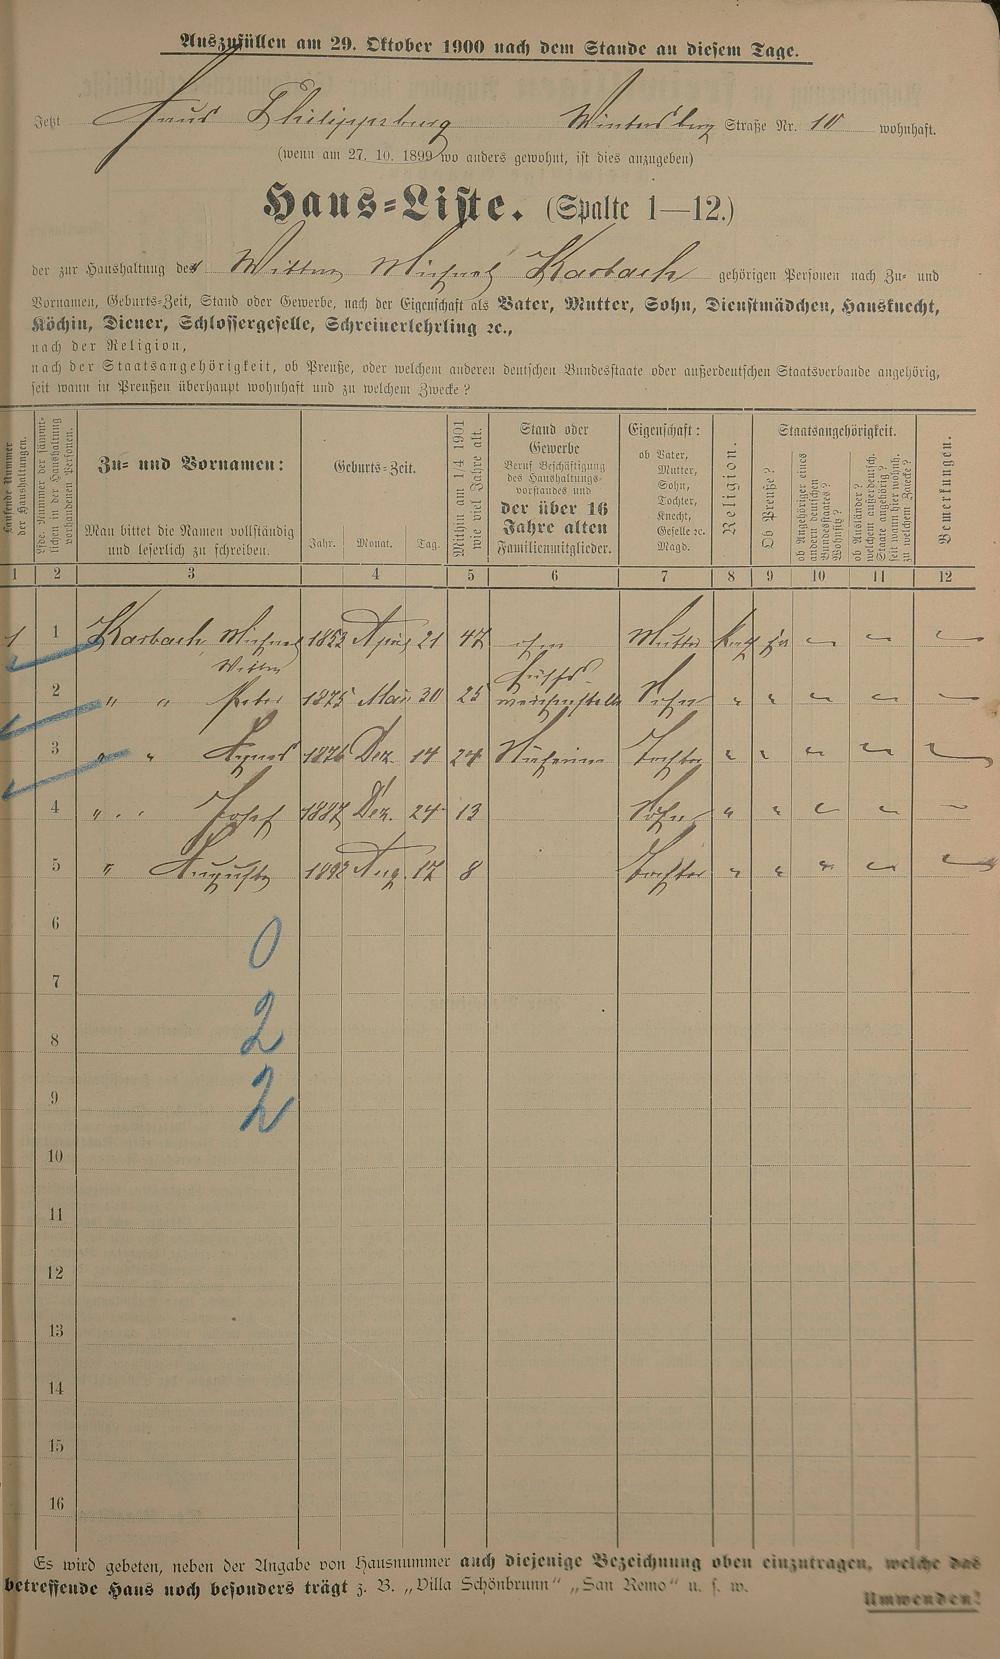 Auszufüllen am 29. Oktober 1900 nach dem Stande an diesem Tage.
Jetzt Haus Philippsburg Wintersberg Straße Nr. 10 wohnhaft.
(wenn am 27. 10. 1899 wo anders gewohnt, ist dies anzugeben)
Haus-Liste. (Spalte 1—12.)
der zur Haushaltung der Wittwe Michael Karbach gehörigen Personen nach Zu- und
Vornamen, Geburts-Zeit, Stand oder Gewerbe, nach der Eigenschaft als Vater, Mutter, Sohn, Dienstmädchen, Hausknecht,
Köchin, Diener, Schlossergeselle, Schreinerlehrling ꝛc.,
nach der Religion,
nach der Staatsangehörigkeit, ob Preuße, oder welchem anderen deutschen Bundesstaate oder außerdeutschen Staatsverbande angehörig,
seit wann in Preußen überhaupt wohnhaft und zu welchem Zwecke?
Laufende Nummer der Haushaltungen.
Lfde. Nummer der sämmtlichen in der Haushaltung vorhandenen Personen.
Zu- und Vornamen:
Man bittet die Namen vollständig
und leserlich zu schreiben.
Geburts-Zeit.
Jahr. Monat. Tag.
Mithin am 1/4 1901
wie viel Jahre alt.
Stand oder
Gewerbe
Beruf Beschäftigung
des Haushaltungs-
vorstandes und
der über 16
Jahre alten
Familienmitglieder.
Eigenschaft:
ob Vater,
Mutter,
Sohn,
Tochter,
Knecht,
Geselle ꝛc.
Magd.
Religion.
Staatsangehörigkeit.
Ob Preuße?
ob Angehöriger eines
andern deutschen
Bundesstaates?
Wohnsitz?
ob Ausländer?
welchem außerdeutsch.
Staate angehörig?
seit wann hier wohnh.
zu welchem Zwecke?
Bemerkungen.
1 2 3 4 5 6 7 8 9 10 11 12
1 1 Karbach, Michael 1853 April 21 47 ohne Mutter kath ja
Wittwe
2 " " Peter 1875 Mai 30 25 Sohn " "
3 " " Agnes 1876 Dez. 14 24 Tochter " "
4 " " Josef 1887 Dez. 24 13 Sohn " "
5 " Auguste 1892 Aug. 17 8 Tochter " "
6
0
7
8 2
9 2
10
11
12
13
14
15
16
Es wird gebeten, neben der Angabe von Hausnummer auch diejenige Bezeichnung oben einzutragen, welche das
betreffende Haus noch besonders trägt z. B. „Villa Schönbrunn“ „San Remo“ u. s. w.
Umwenden!